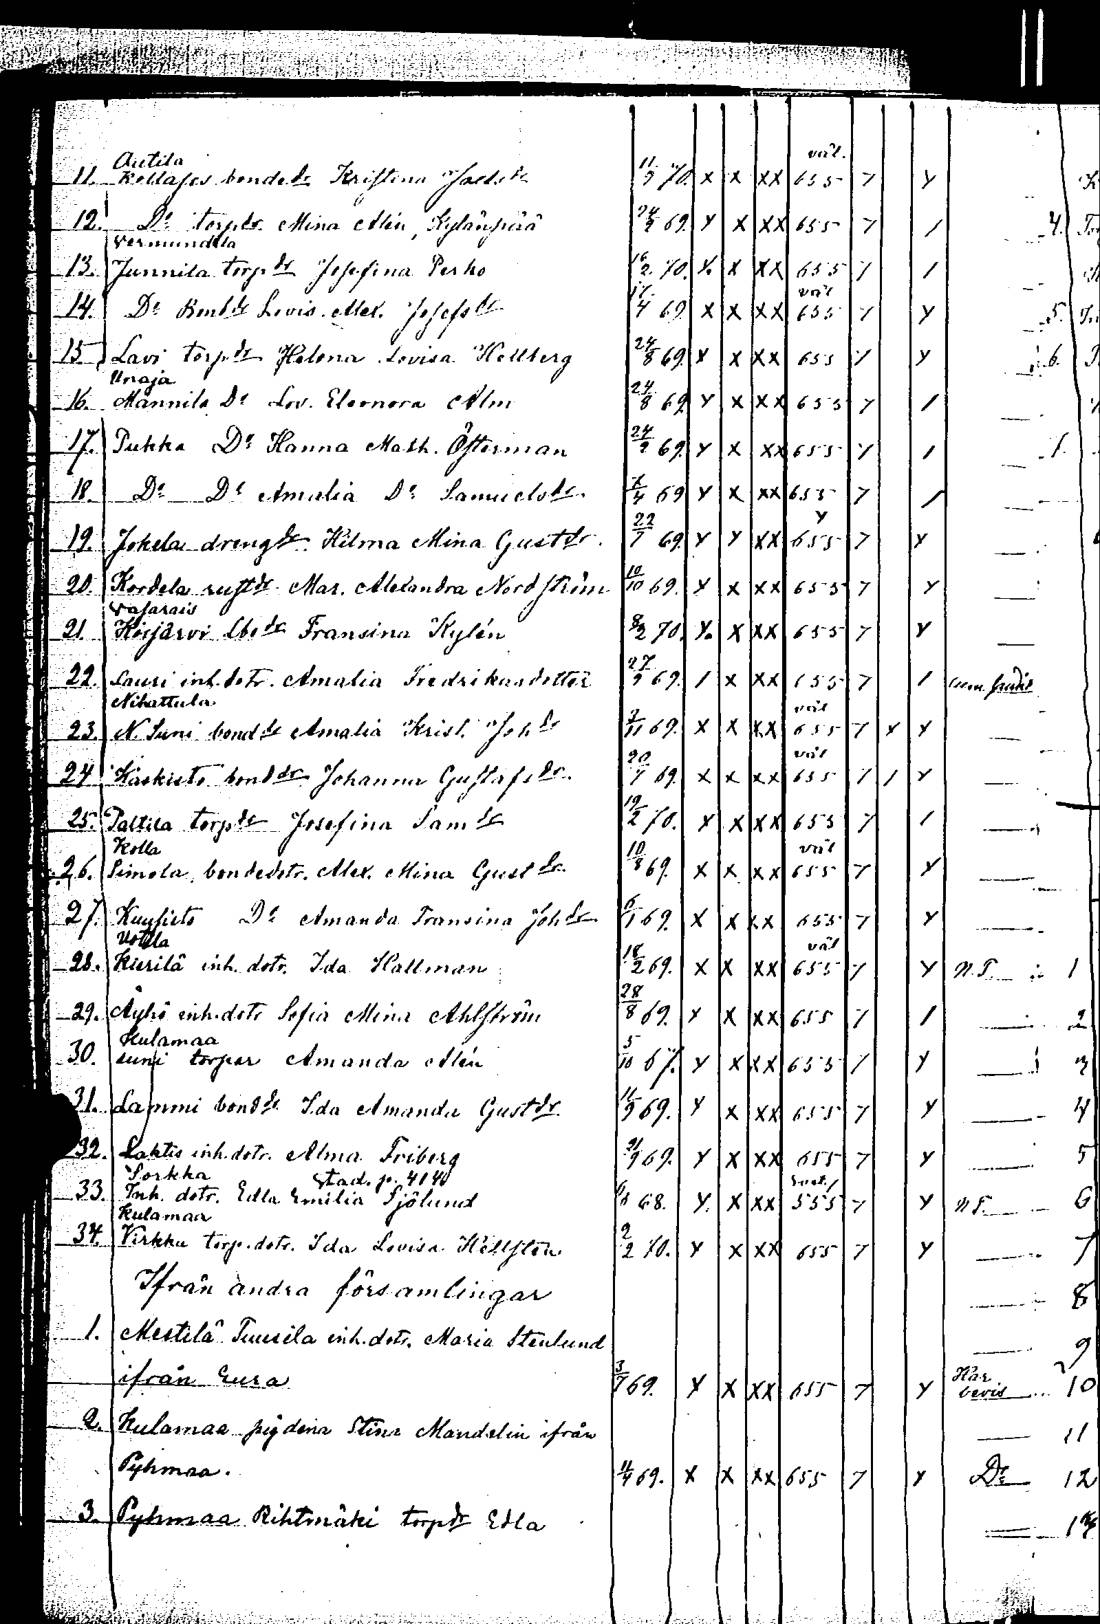 väl.
Antila
11. Kollajos bondedr Kristina Jacdr 11/9 70. x x xx 655 7 y
12. Do torpdr. Mina Alén, Kylänpää 24/9 69. y x xx 655 7 / 4.
Vermundila
13. Junnila torpdr Josefina Perho 16/2 70. y. x xx 655 7 /
väl
14. Do Bonddr Lovis. Alex. Josefsdr 17/4 69 x x xx 655 7 y 5.
15 Lavi torpdr Helena Lovisa Hellberg 24/8 69. y x xx 655 7 y 6.
Unaja
16. Männila Do Lov. Eleonora Alm 24/8 69 y x xx 655 7 /
17. Pukka Do Hanna Math. Österman 24/9 69. y x xx 655 y /
18. Do Do Amalia Do Samuelsdr. 4 69 y x xx 655 7 /
19. Jokela drengdr. Hilma Mina Gustdr. 22/7 69 y y xx 655 7 y
20. Kordela rustdr Mar. Alexandra Nordström 10/10 69. y x xx 655 7 y
Vasarais
21. Korjärvi Fransina Kylén 8/2 70. y. x xx 655 7 y
22. Lauri inh. dotr. Amalia Fredrikasdotter 27/9 69. / x xx 655 7 /
Nihattula väl
23. N. Suni bonddr Amalia Krist. Johdr 7/11 69. x x xx 655 7 x y
väl
24 Kaskisto bonddr Johanna Gustafsdr. 20/7 69. x x xx 655 7 / y
25. Paltila torpdr Josefina Samdr 19/2 70. x x xx 655 7 /
Kolla väl
26. Simola bondedotr. Alex. Mina Gustdr. 10/8 69. x x xx 655 7 y
27. Kuusisto Do Amanda Fransina Johdr 6/1 69. x x xx 655 7 y
Uotila väl
28. Kierilä inh. dotr. Ida Hallman 18/2 69. x x xx 655 7 y N.T. 1
29. Äyhö inh. dotr Sofia Mina Ahlström 28/8 69. y x xx 655 7 / 2
Kulamaa
30. Suni torpar Amanda Alén 5/10 67. y x xx 655 7 y 3
31. Lammi bonddr Ida Amanda Gustdr. 11/9 69. y x xx 655 7 y 4
32. Laktis inh. dotr. Alma Friberg 21/9 69. y x xx 655 7 y 5
Sorkka stad. p. 414
33. Inh. dotr. Edla Emilia Sjölund 68. y. x xx 555 7 y N.T. 6
Kulamaa
34. Virkku torp. dotr. Ida Lovisa Hellsten 2/2 70. y x xx 655 7 y 7
Ifrån andra församlingar 8
1. Mestilä Tuurila inh. dotr. Maria Stenlund 9
ifrån Eura 3/7 69. y x xx 655 7 y Har bevis 10
2. Kulamaa pigdena Stina Mandelin ifrån 11
Pyhmaa. 4/4 69. x x xx 655 7 y Do 12
3. Pyhmaa Rihtmäki torpdr Edla